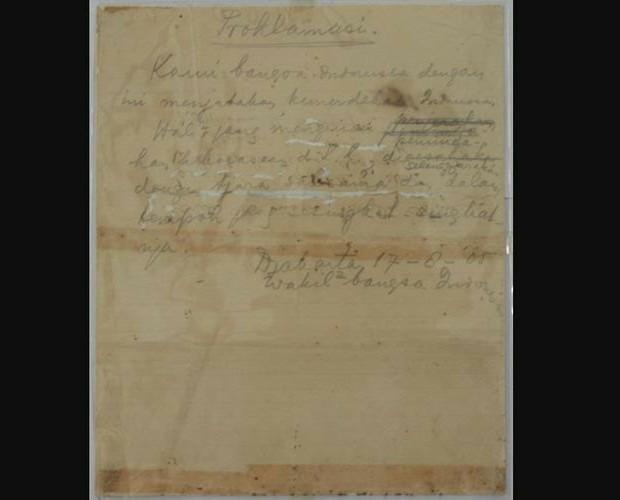 Proklamasi.
Kami bangsa Indonesia dengan
ini menjatakan kemerdekaan Indonesia
Hal2 jang mengenai
peminda-
han kekoeasaan d.l.l., di
selenggarakan
dengan tjara saksama dan dalam
tempoh jg sesingkat-singkat-
nja.
Djakarta 17-8-'05
Wakil2 bangsa Indonesia